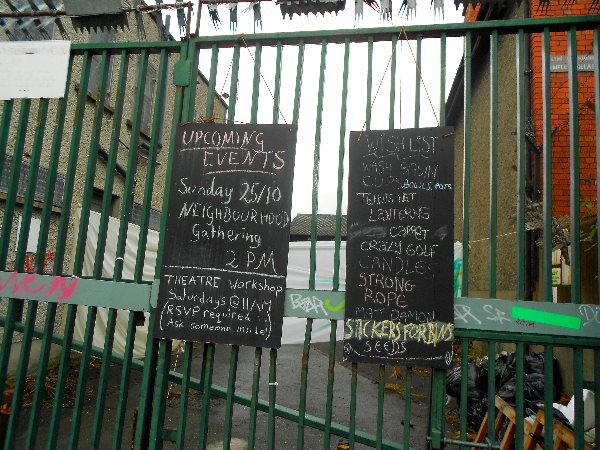 UPCOMING
EVENTS
Sunday 25/10
NEIGHBOURHOOD
Gathering
2 PM
THEATRE Workshop
Saturdays @ 11AM
RSVP required
WISH LIST
WASH BASIN
BOWLS, POTS
TENNIS NET
LANTERNS
CARPET
CRAZY GOLF
CANDLES
STRONG
ROPE
MATT DAMON
STICKERS FOR BINS
SEEDS